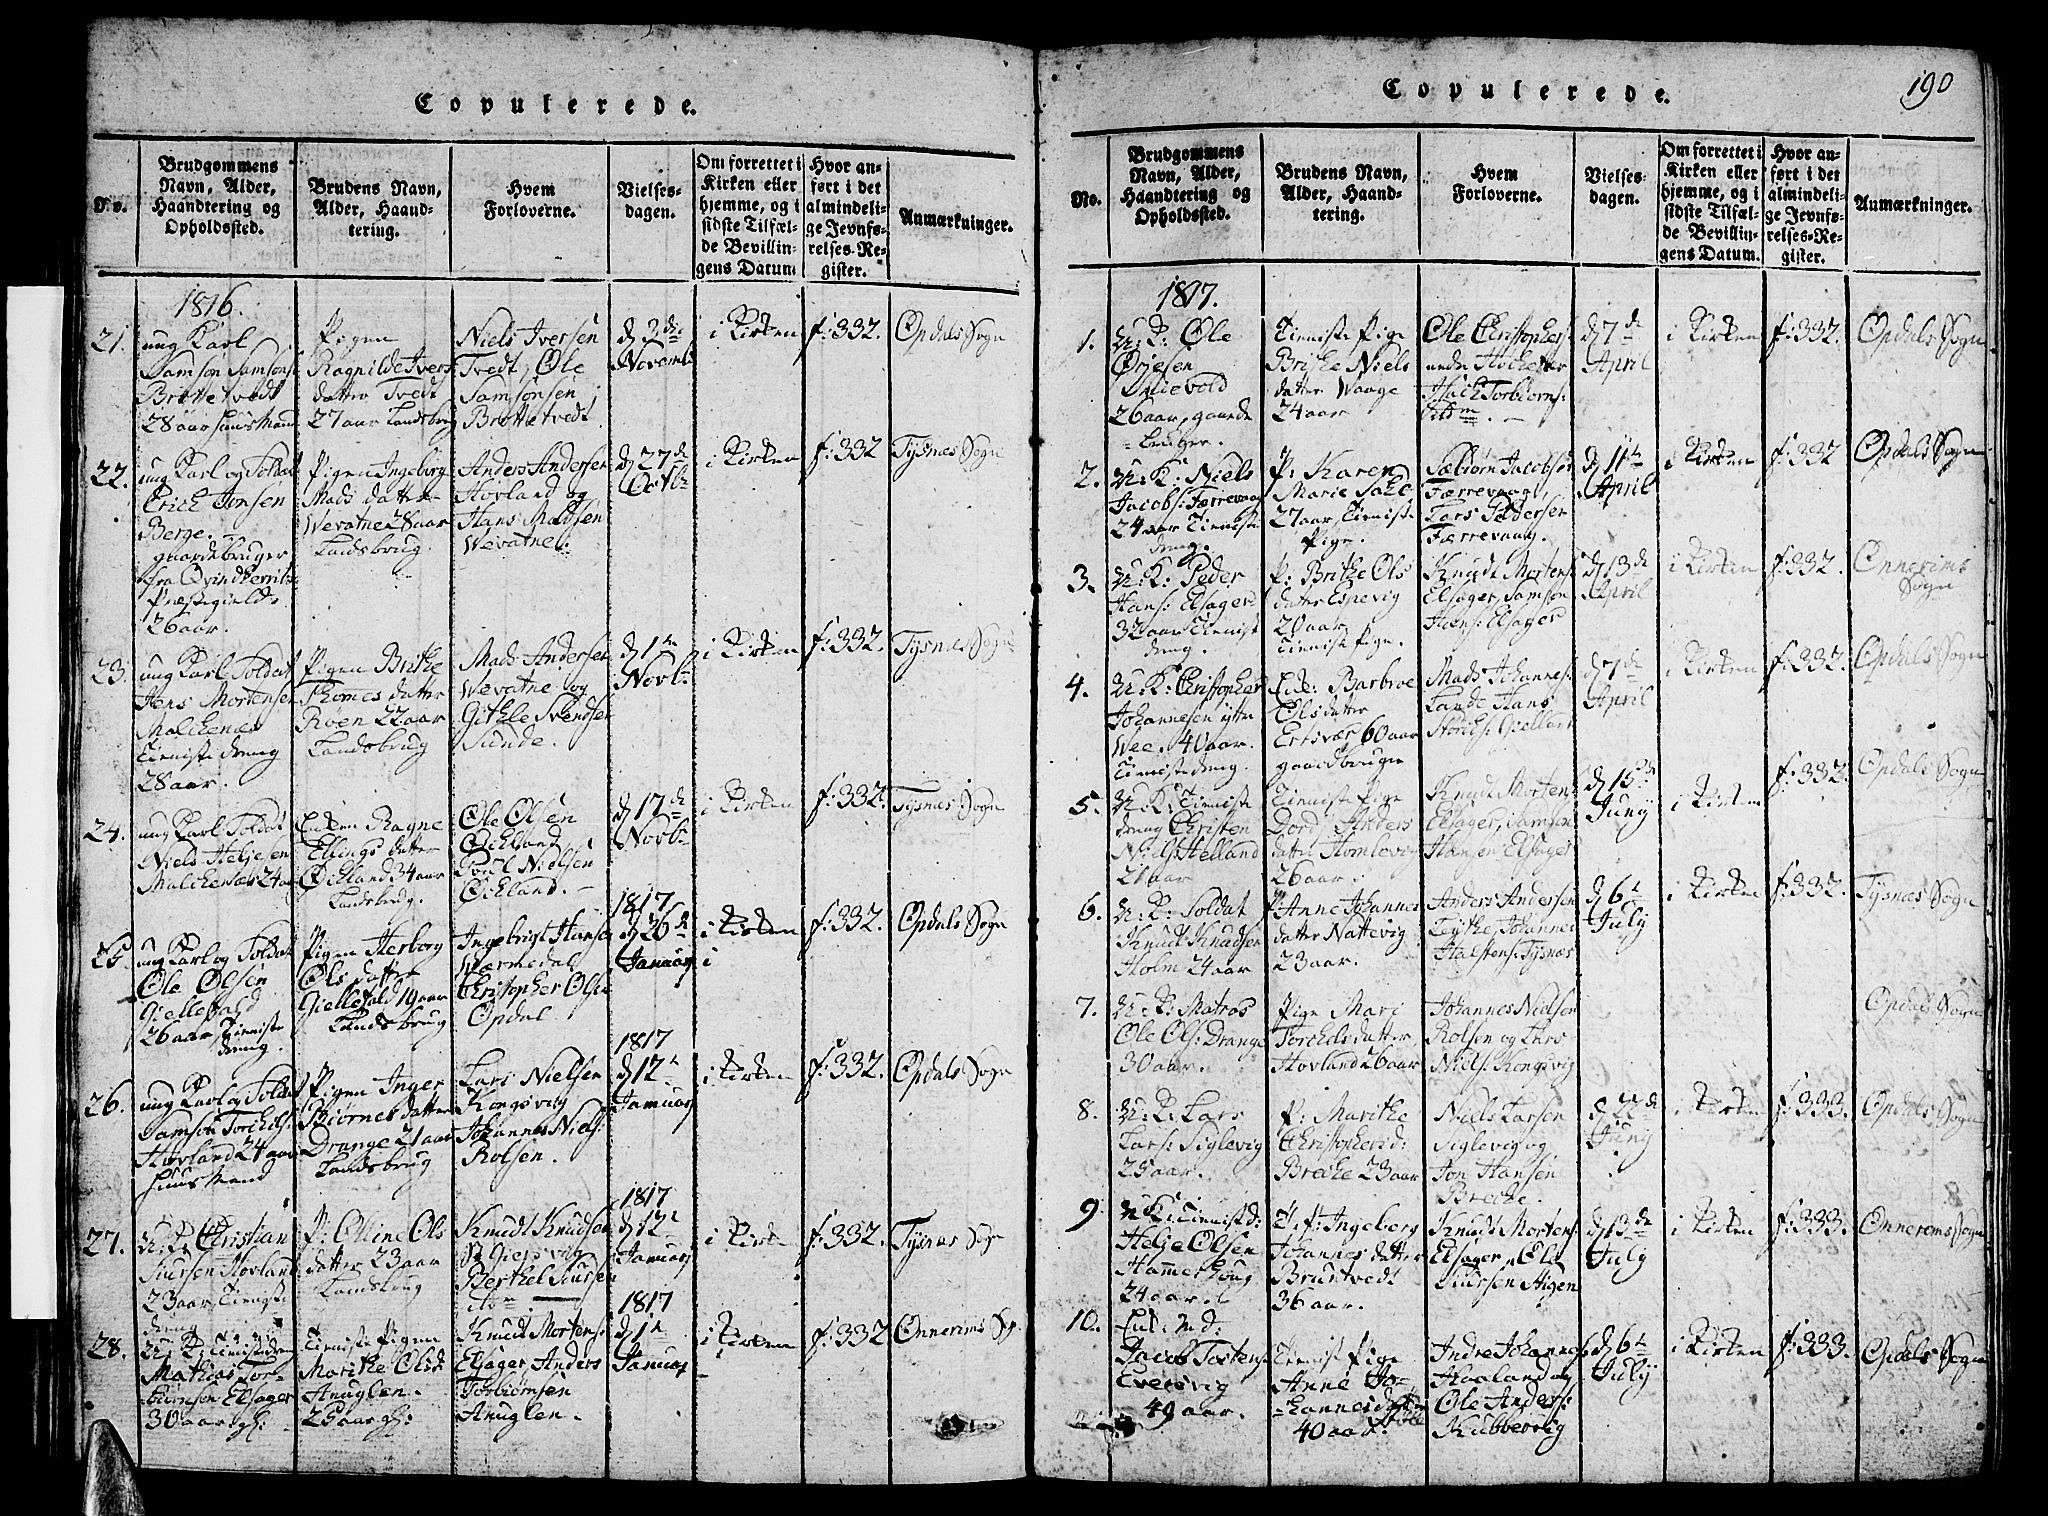 Copulerede.
No.
Brudgommens
Navn, Alder,
Haandtering og
Opholdssted.
Brudens Navn,
Alder, Haand-
tering.
Hvem
Forloverne.
Vielses-
dagen.
Om forrettet i
Kirken eller
hjemme, og i
sidste Tilfæl-
de Bevillin-
gens Datum.
Hvor an-
ført i det
almindeli-
ge Jevnfø-
relses-Re-
gister.
Anmærkninger.
1816.
21.
ung Karl
Samson Samsons:
Brottetvedt
28 aar Huusmand
Pigen
Ragnilde Ivers
datter Tvedt
27 aar Landsbrug
Niels Iversen
Tvedt, Ole
Samsonsen
Brottetvedt
d 3de
Novemb
i Kirken
f: 332.
Opdals Sogn
22.
ung Karl og Soldat
Erich Jonsen
Berge.
gaardebruger
fra Qvindherrits
Præstegields
26 aar.
Pigen Ingeborg
Mads datter
Wevatne 28 aar
Landsbrug.
Anders Andersen
Hovland og
Hans Madsen
Wevatne.
d 27de
Octbr
i Kirken
f: 332
Tysnes Sogn
23.
ung Karl Soldat
Jens Mortensen
Malchenæs
Tieniste dreng
28 aar.
Pigen Brithe
Thomes datter
Roen 22 aar
Landsbrug
Mads Andersen
Wevatne og
Githle Svendsen
Sunde.
d 1te
Novbr
i Kirken
f: 332.
Tysnes Sogn
24.
ung Karl Soldat
Niels Heljesen
Malchenæs 24 aar
Enken Ragne
Ellings datter
Øchland 34 aar
Landsbrug.
Ole Olsen
Øchland
Poul Nielsen
Øchland.
d 17de
Novbr
i Kirken
f: 332.
Tysnes Sogn
25
ung Karl og Soldat
Ole Olsen
Giellefald
26 aar, Tieniste
dreng.
Pigen Herborg
Ols datter
Giellefald 19 aar
Landsbrug
Ingebrigt Hansen
Wærmedal
Christopher Olsen
Opdal
1817
d 26de
Januar
i Kirken
f: 332.
Opdals Sogn
26.
ung Karl og Soldat
Samson Torchils:
Hovland 24 aar
Huusmand
Pigen Inger
Biornes datter
Drange 21 aar
Landsbrug
Lars Nielsen
Kongsvig
Johannes Niels:
Rolsen.
1817
d 12te
Januar
i Kirken
f: 332.
Opdals Sogn
27.
U: K: Christian
Siursen Hovland
23 aar, Tieniste
dreng
P: Olline Ols
datter 23 aar
Landsbrug
Knudt Knudsen
Giersvig
Berthel Siursen
1817
d 12te
Januar
i Kirken
f: 332.
Tysnes Sogn
28.
U: K: Tienistedreng
Mathias Tor-
biornsen Elsager
30 aar
Tieniste Pigen
Marithe Olsd:
Anuglen.
25 aar
Knudt Mortens:
Elsager, Anders
Torbiornsen
Anuglen.
1817
d 1te
Januar
i Kirken
f: 332
Onnerims Sogn
Copulerede.
190
No.
Brudgommens
Navn, Alder,
Haandtering og
Opholdssted.
Brudens Navn,
Alder, Haand-
tering.
Hvem
Forloverne.
Vielses-
dagen.
Om forrettet i
Kirken eller
hjemme, og i
sidste Tilfæl-
de Bevillin-
gens Datum.
Hvor an-
ført i det
almindeli-
ge Jevnfø-
relses-Re-
gister.
Anmærkninger.
1817.
1.
U: K: Ole
Ørjesen
26 aar, gaarde
bruger.
Tieniste Pige
Brithe Niels
datter Waage
24 aar
Ole Christophers:
Torbiorns:
d 7de
April
i Kirken
f: 332.
Opdals Sogn
2.
U: K: Niels
Jacobs: Færrevaag
24 aar Tieniste
dreng.
P: Karen
Marie
27 aar, Tieniste
Pige.
Sæbiorn Jacobsen
Færrevaag,
Lars Pedersen
Færrevaag.
d 11te
April
i Kirken
f: 332
Opdals Sogn
3.
U: K: Peder
Hans: Elsager
32 aar Tieniste
dreng.
P: Brithe Ols
datter Espevig
20 aar
Tieniste Pige.
Knudt Mortens:
Elsager, Samson
Hans: Elsager
d 13de
April
i Kirken
f: 332.
Onnerims
Sogn
4.
U: K: Christopher
Johannesen ytte
Wee. 40 aar.
Tieniste dreng.
Enke: Barbroe
Olsdatter
Ertsvær 60 aar
gaardbruger
Mads Johannes:
Lande Hans
Gielland
d 7de
April
i Kirken
f: 332.
Opdals Sogn
5.
U: K: Tieniste
dreng Christen
Niels: Helland
21 aar
Tieniste Pige
Dordj Anders
datter Homlevig
26 aar.
Knudt Mortens:
Elsager, Samson
Hansen, Elsager
d 15de
Juny
i Kirken
f: 332.
Opdals Sogn
6.
U: K: Soldat
Knudt Knudsen
Holm 24 aar
P: Anne Johannes
datter Nattevig
23 aar.
Anders Andersen
Teyke, Johannes
Halstens: Tysnæs
d 6te
July
i Kirken
f: 332.
Tysnes Sogn
7.
U: K: Matros
Ole Ols: Drange
30 aar.
Pige Mari
Torchelsdatter
Hovland 26 aar
Johannes Nielsen
Rolsen og Lars
Niels: Kongsvig
Opdals Sogn
8.
U: K: Lars
Lars: Siglevig
25 aar.
P: Marithe
Christopherid:
Breche 23 aar
Niels Larsen
Siglevig og
Jon Hansen
Breche.
d 22de
Juny
i Kirken
f: 333.
Opdals Sogn
9
U K: Tienisted:
Helje Olsen
Hammerhoug
24 aar.
T: P: Ingeberg
Johannes datter
Bruntvedt
36 aar.
Knudt Mortens:
Elsager, Ole
Siursen Aigen
d 13de
July
i Kirken
f: 333.
Onnerems Sogn
10.
Enk: md:
Jacob Tostens:
49 aar.
Tieniste Pige
Anne Jo-
hannesdatter
40 aar.
Andre Johannes
Haaland og
Ole Anders:
Kubbervig
d 6te
July
i Kirken
f: 333.
Opdals Sogn